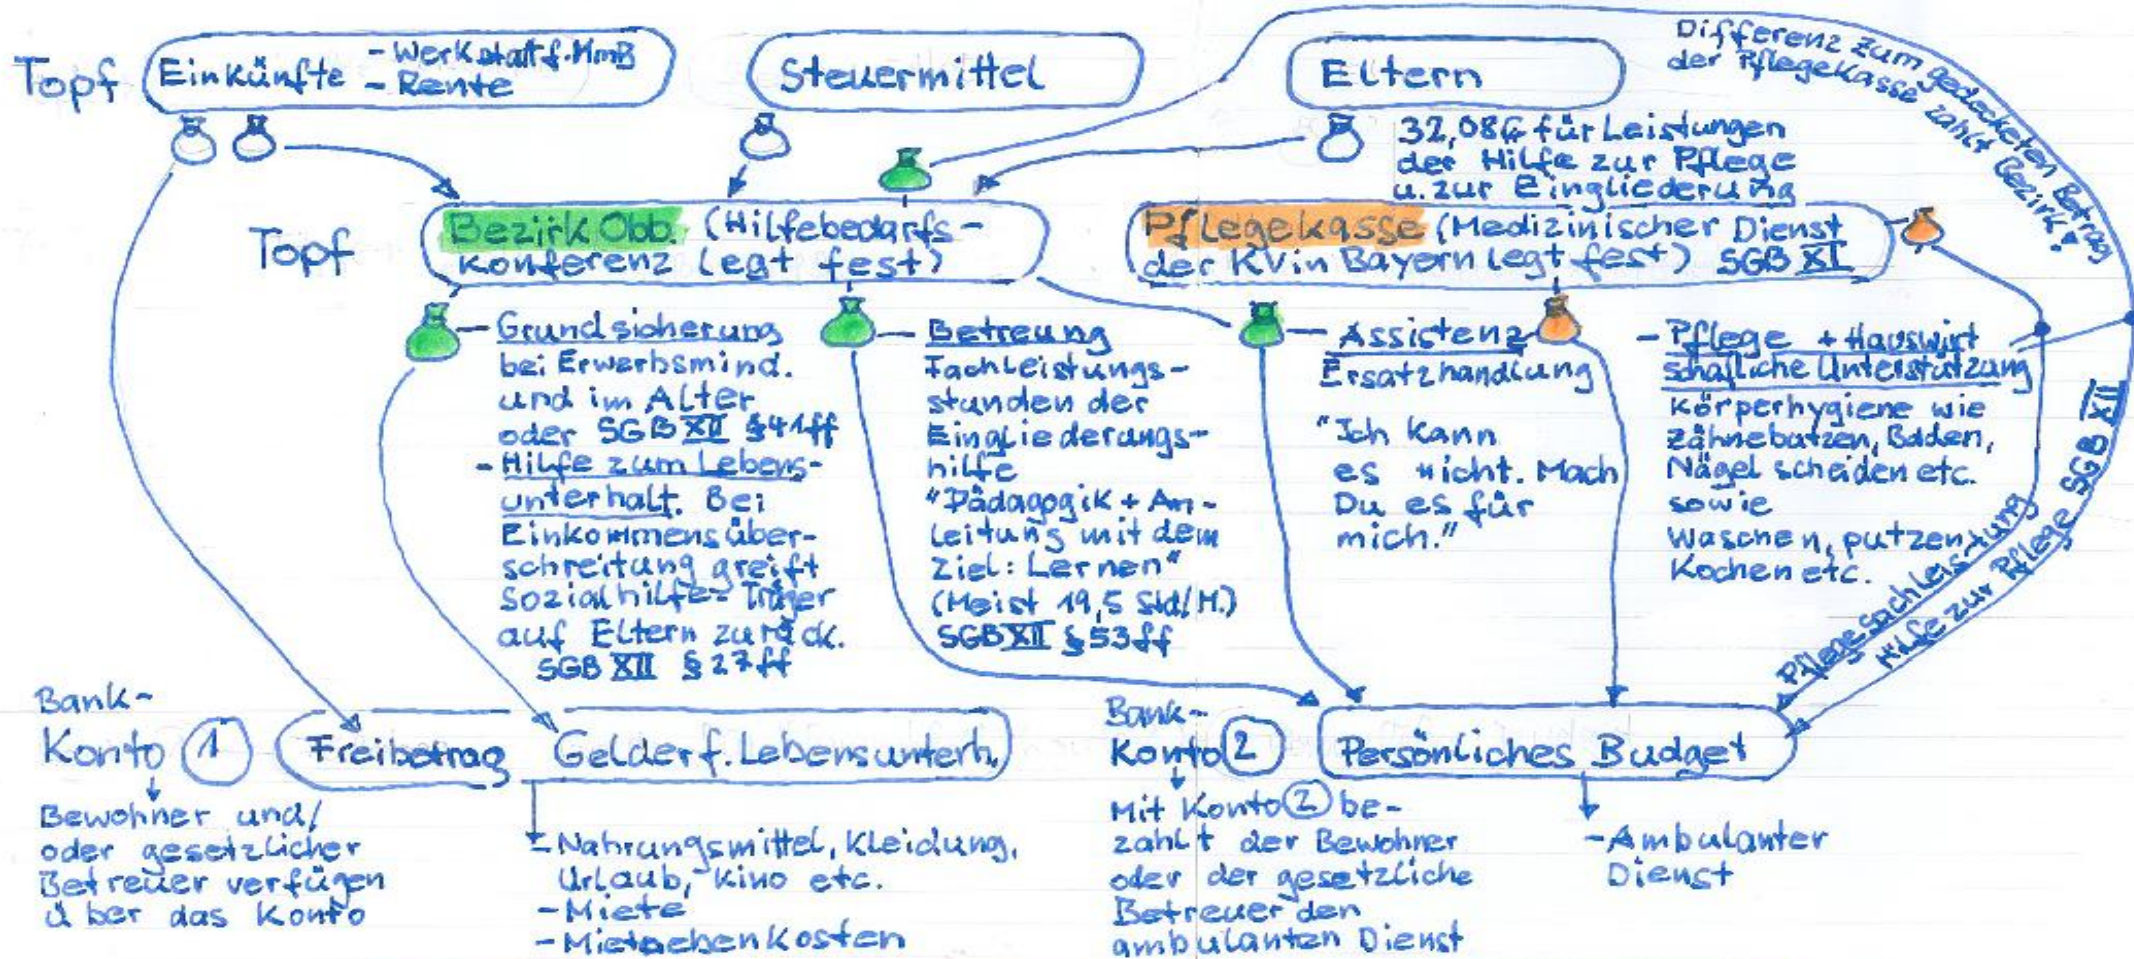 Topf
Einkünfte
- Werkstatt f. MmB
- Rente
Steuermittel
Eltern
Differenz zum gedeckelten Betrag
der Pflegekasse zahlt Bezirk!
32,08€ für Leistungen
der Hilfe zur Pflege
u. zur Eingliederung
Topf
Bezirk Obb. (Hilfebedarfs-
konferenz legt fest)
Pflegekasse (Medizinischer Dienst
der KV in Bayern legt fest) SGB XI
- Grundsicherung
bei Erwerbsmind.
und im Alter
oder SGB XII §41ff
- Hilfe zum Lebens-
unterhalt. Bei
Einkommensüber-
schreitung greift
Sozialhilfe-Träger
auf Eltern zurück.
SGB XII §27ff
- Betreung
Fachleistungs-
stunden der
Eingliederungs-
hilfe
"Pädagogik + An-
leitung mit dem
Ziel: Lernen"
(Meist 19,5 Std/M.)
SGB XII §53ff
- Assistenz
Ersatzhandlung
"Ich kann
es nicht. Mach
Du es für
mich."
- Pflege + Hauswirt
schaftliche Unterstützung
Körperhygiene wie
Zähnebutzen, Baden,
Nägel scheiden etc.
sowie
Waschen, putzen,
Kochen etc.
Pflegesachleistung
Hilfe zur Pflege SGB XII
Bank-
Konto 1
Freibetrag
Gelder f. Lebensunterh.
Bewohner und/
oder gesetzlicher
Betreuer verfügen
über das Konto
- Nahrungsmittel, Kleidung,
Urlaub, Kino etc.
- Miete
- Mietnebenkosten
Bank-
Konto 2
Persönliches Budget
Mit Konto 2 be-
zahlt der Bewohner
oder der gesetzliche
Betreuer den
ambulanten Dienst
- Ambulanter
Dienst